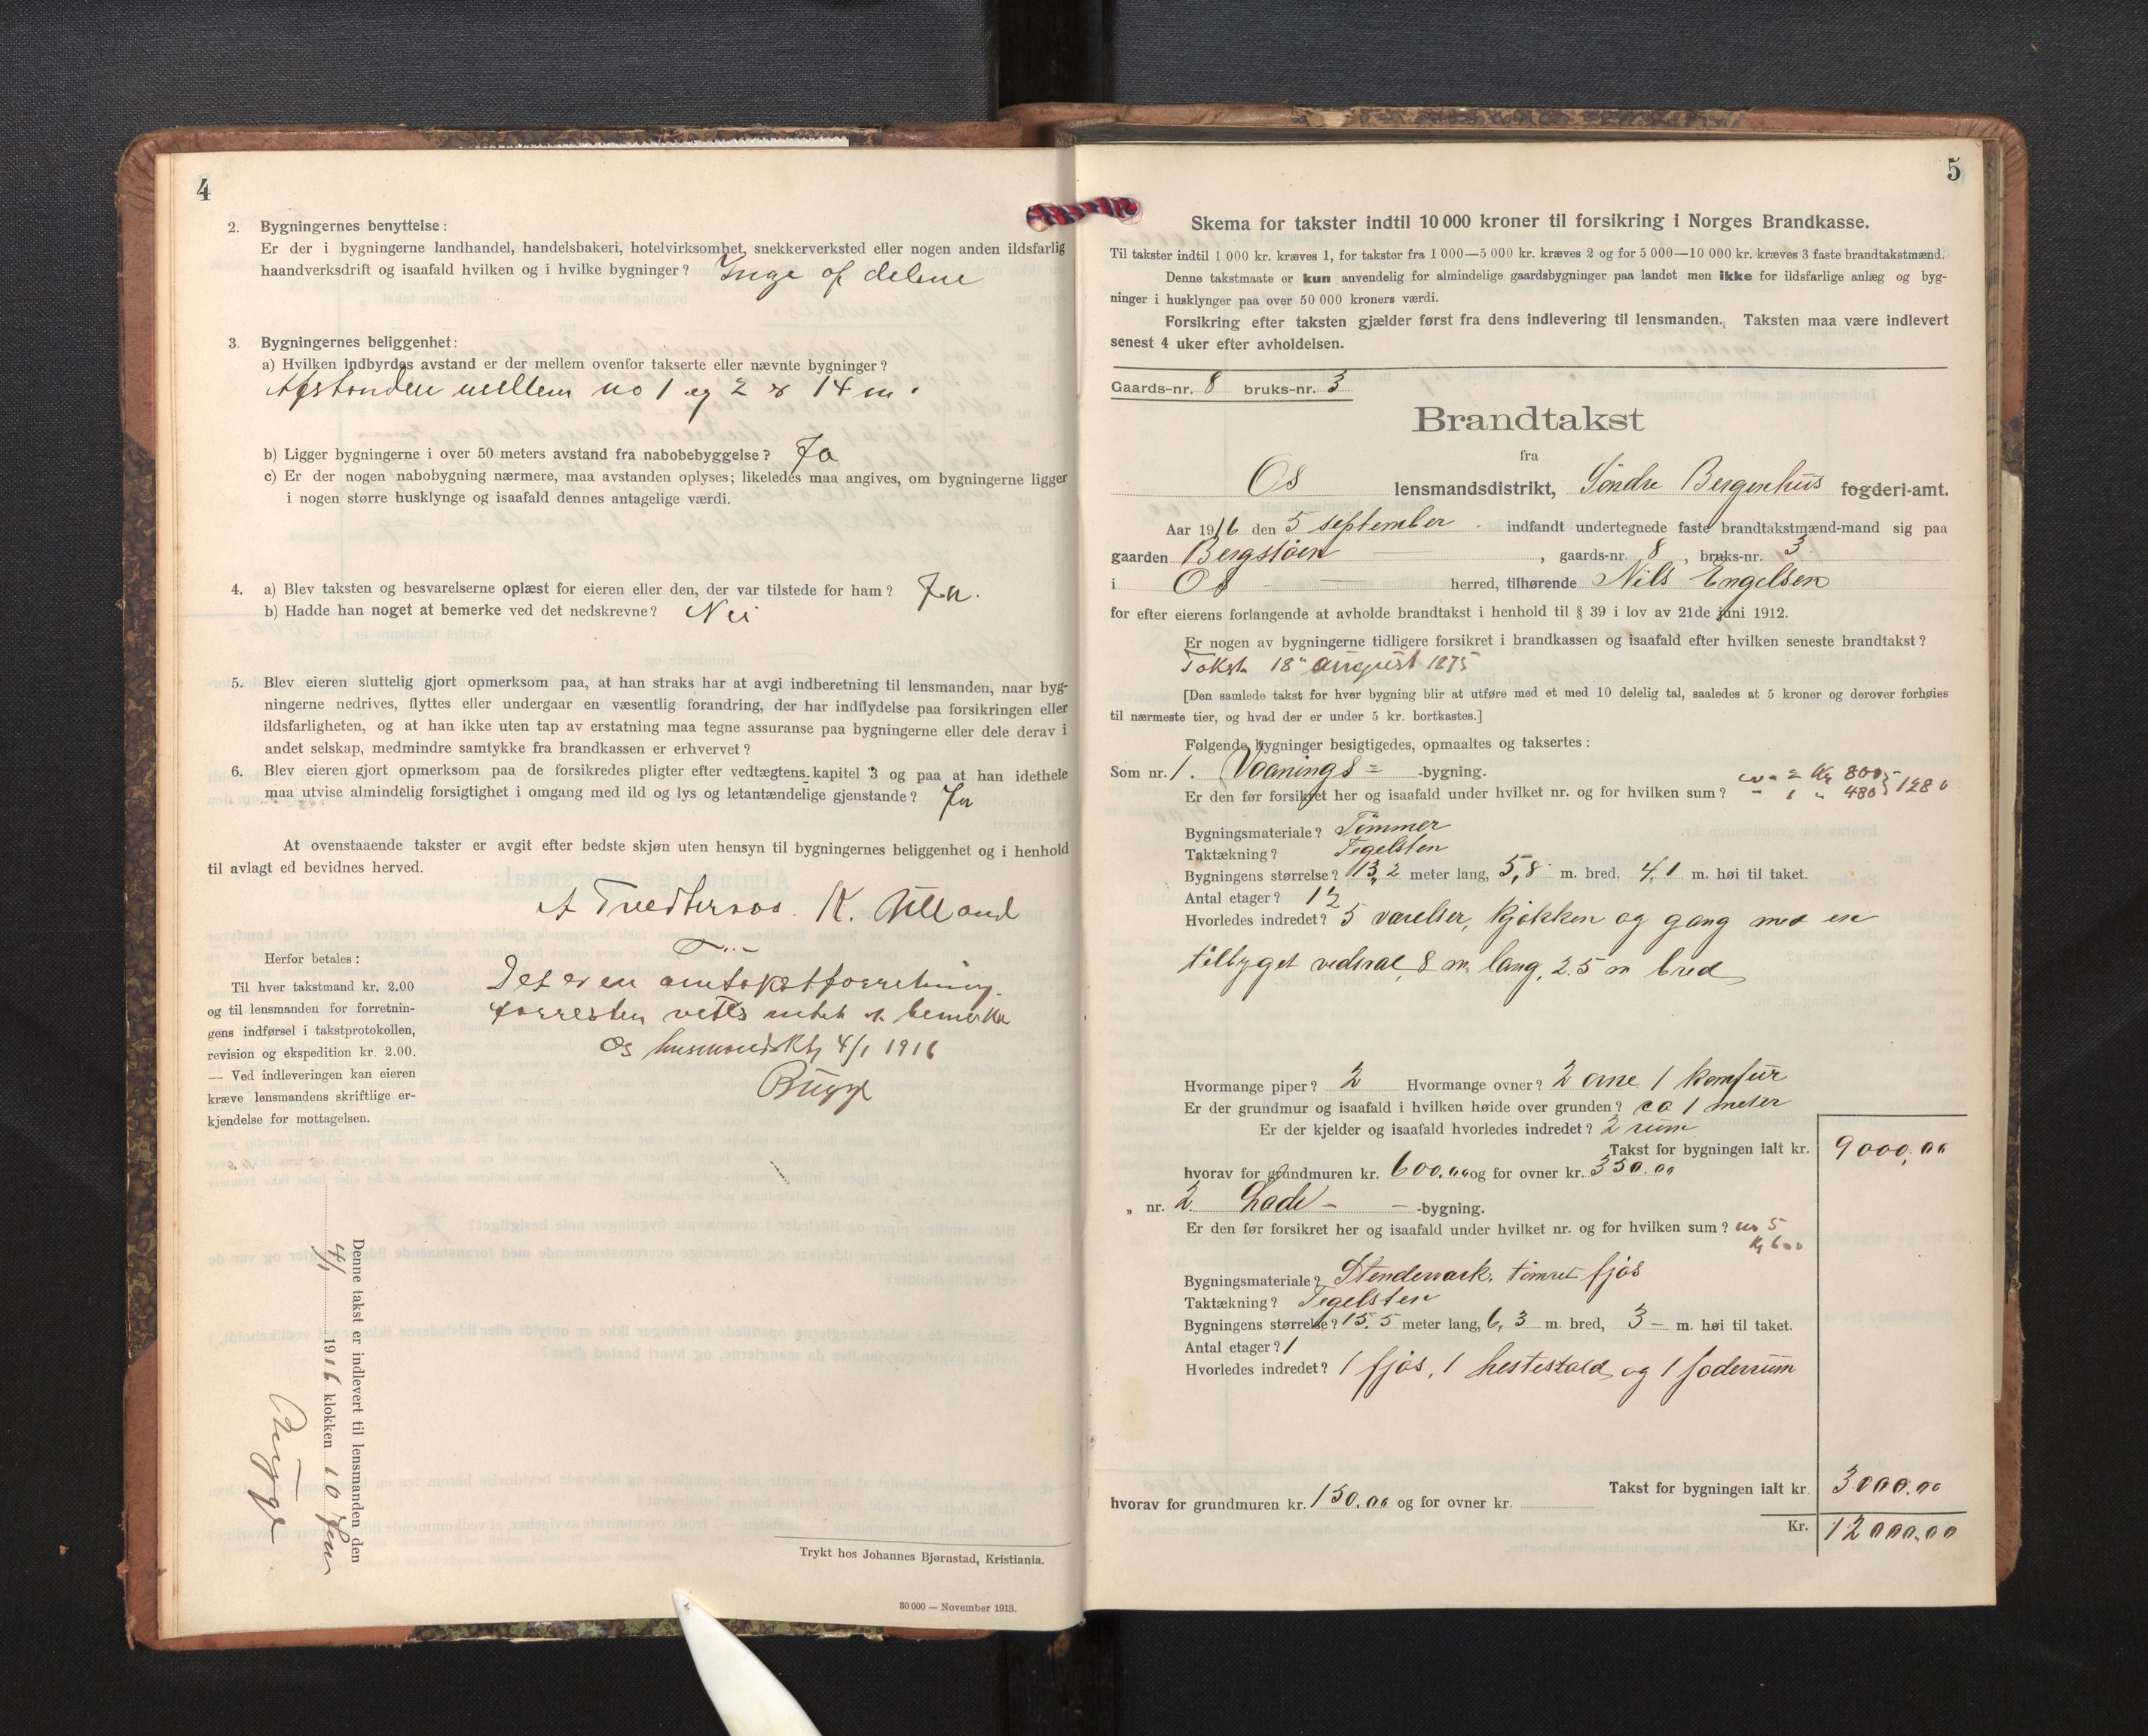 4
2. Bygningernes benyttelse:
Er der i bygningerne landhandel, handelsbakeri, hotelvirksomhet, snekkerverksted eller nogen anden ildsfarlig
haandverksdrift og isaafald hvilken og i hvilke bygninger? Inge af delene
3. Bygningernes beliggenhet:
a) Hvilken indbyrdes avstand er der mellem ovenfor takserte eller nævnte bygninger?
Afstanden mellem no 1 og 2 er 14 m.
b) Ligger bygningerne i over 50 meters avstand fra nabobebyggelse? Ja
c) Er der nogen nabobygning nærmere, maa avstanden oplyses; likeledes maa angives, om bygningerne ligger
i nogen større husklynge og isaafald dennes antagelige værdi.
4. a) Blev taksten og besvarelserne oplæst for eieren eller den, der var tilstede for ham? Ja.
b) Hadde han noget at bemerke ved det nedskrevne? Nei
5. Blev eieren sluttelig gjort opmerksom paa, at han straks har at avgi indberetning til lensmanden, naar byg-
ningerne nedrives, flyttes eller undergaar en væsentlig forandring, der har indflydelse paa forsikringen eller
ildsfarligheten, og at han ikke uten tap av erstatning maa tegne assuranse paa bygningerne eller dele derav i
andet selskap, medmindre samtykke fra brandkassen er erhvervet?
6. Blev eieren gjort opmerksom paa de forsikredes pligter efter vedtægtens kapitel 3 og paa at han idethele
maa utvise almindelig forsigtighet i omgang med ild og lys og letantændelige gjenstande? Ja
At ovenstaaende takster er avgit efter bedste skjøn uten hensyn til bygningernes beliggenhet og i henhold
til avlagt ed bevidnes herved.
K. Ulland
Herfor betales:
Til hver takstmand kr. 2.00
og til lensmanden for forretnin-
gens indførsel i takstprotokollen,
revision og ekspedition kr. 2.00.
— Ved indleveringen kan eieren
kræve lensmandens skriftlige er-
kjendelse for mottagelsen.
Det er en omtakstforretning.
forresten vides intet at bemerke
Os 4/1 1916
Bugge
Denne takst er indlevert til lensmanden den
4/1 1916 klokken 10 fm
Bugge
Trykt hos Johannes Bjørnstad, Kristiania.
30 000 — November 1913.
5
Skema for takster indtil 10 000 kroner til forsikring i Norges Brandkasse.
Til takster indtil 1 000 kr. kræves 1, for takster fra 1 000—5 000 kr. kræves 2 og for 5 000—10 000 kr. kræves 3 faste brandtakstmænd.
Denne takstmaate er kun anvendelig for almindelige gaardsbygninger paa landet men ikke for ildsfarlige anlæg og byg-
ninger i husklynger paa over 50 000 kroners værdi.
Forsikring efter taksten gjælder først fra dens indlevering til lensmanden. Taksten maa være indlevert
senest 4 uker efter avholdelsen.
Gaards-nr. 8 bruks-nr. 3
Brandtakst
fra
Os lensmandsdistrikt, Søndre Bergenhus fogderi-amt.
Aar 1916 den 5 september indfandt undertegnede faste brandtakstmænd-mand sig paa
gaarden Bergstøen, gaards-nr. 8, bruks-nr. 3
i Os herred, tilhørende Nils Engelsen
for efter eierens forlangende at avholde brandtakst i henhold til § 39 i lov av 21de juni 1912.
Er nogen av bygningerne tidligere forsikret i brandkassen og isaafald efter hvilken seneste brandtakst?
Takst 18 august 1875
[Den samlede takst for hver bygning blir at utføre med et med 10 delelig tal, saaledes at 5 kroner og derover forhøies
til nærmeste tier, og hvad der er under 5 kr. bortkastes.]
Følgende bygninger besigtigedes, opmaaltes og taksertes:
Som nr. 1. Vaanings= -bygning.
Er den før forsikret her og isaafald under hvilket nr. og for hvilken sum? 2 Kr 800
" 1 " 480 } 1280
Bygningsmateriale? Tømmer
Taktækning? Tegelsten
Bygningens størrelse? 13,2 meter lang, 5,8 m. bred, 4,1 m. høi til taket.
Antal etager? 1½
Hvorledes indredet? 5 værelser, kjøkken og gang med en
tilbyget vedsval, 8 m. lang, 2.5 m bred
Hvormange piper? 2 Hvormange ovner? 2 ovne 1 komfur
Er der grundmur og isaafald i hvilken høide over grunden? ca 1 meter
Er der kjelder og isaafald hvorledes indredet? 2 rum
Takst for bygningen ialt kr. 9000.00
hvorav for grundmuren kr. 600.00 og for ovner kr. 350.00
„ nr. 2. Lade - -bygning.
Er den før forsikret her og isaafald under hvilket nr. og for hvilken sum? no 5
Kr 600
Bygningsmateriale? Stenderverk, tømret fjøs
Taktækning? Tegelsten
Bygningens størrelse? 15,5 meter lang, 6,3 m. bred, 3 — m. høi til taket.
Antal etager? 1
Hvorledes indredet? 1 fjøs, 1 hestestald og 1 foderrum
Takst for bygningen ialt kr. 3000.00
hvorav for grundmuren kr. 150.00 og for ovner kr.
Kr. 12000.00